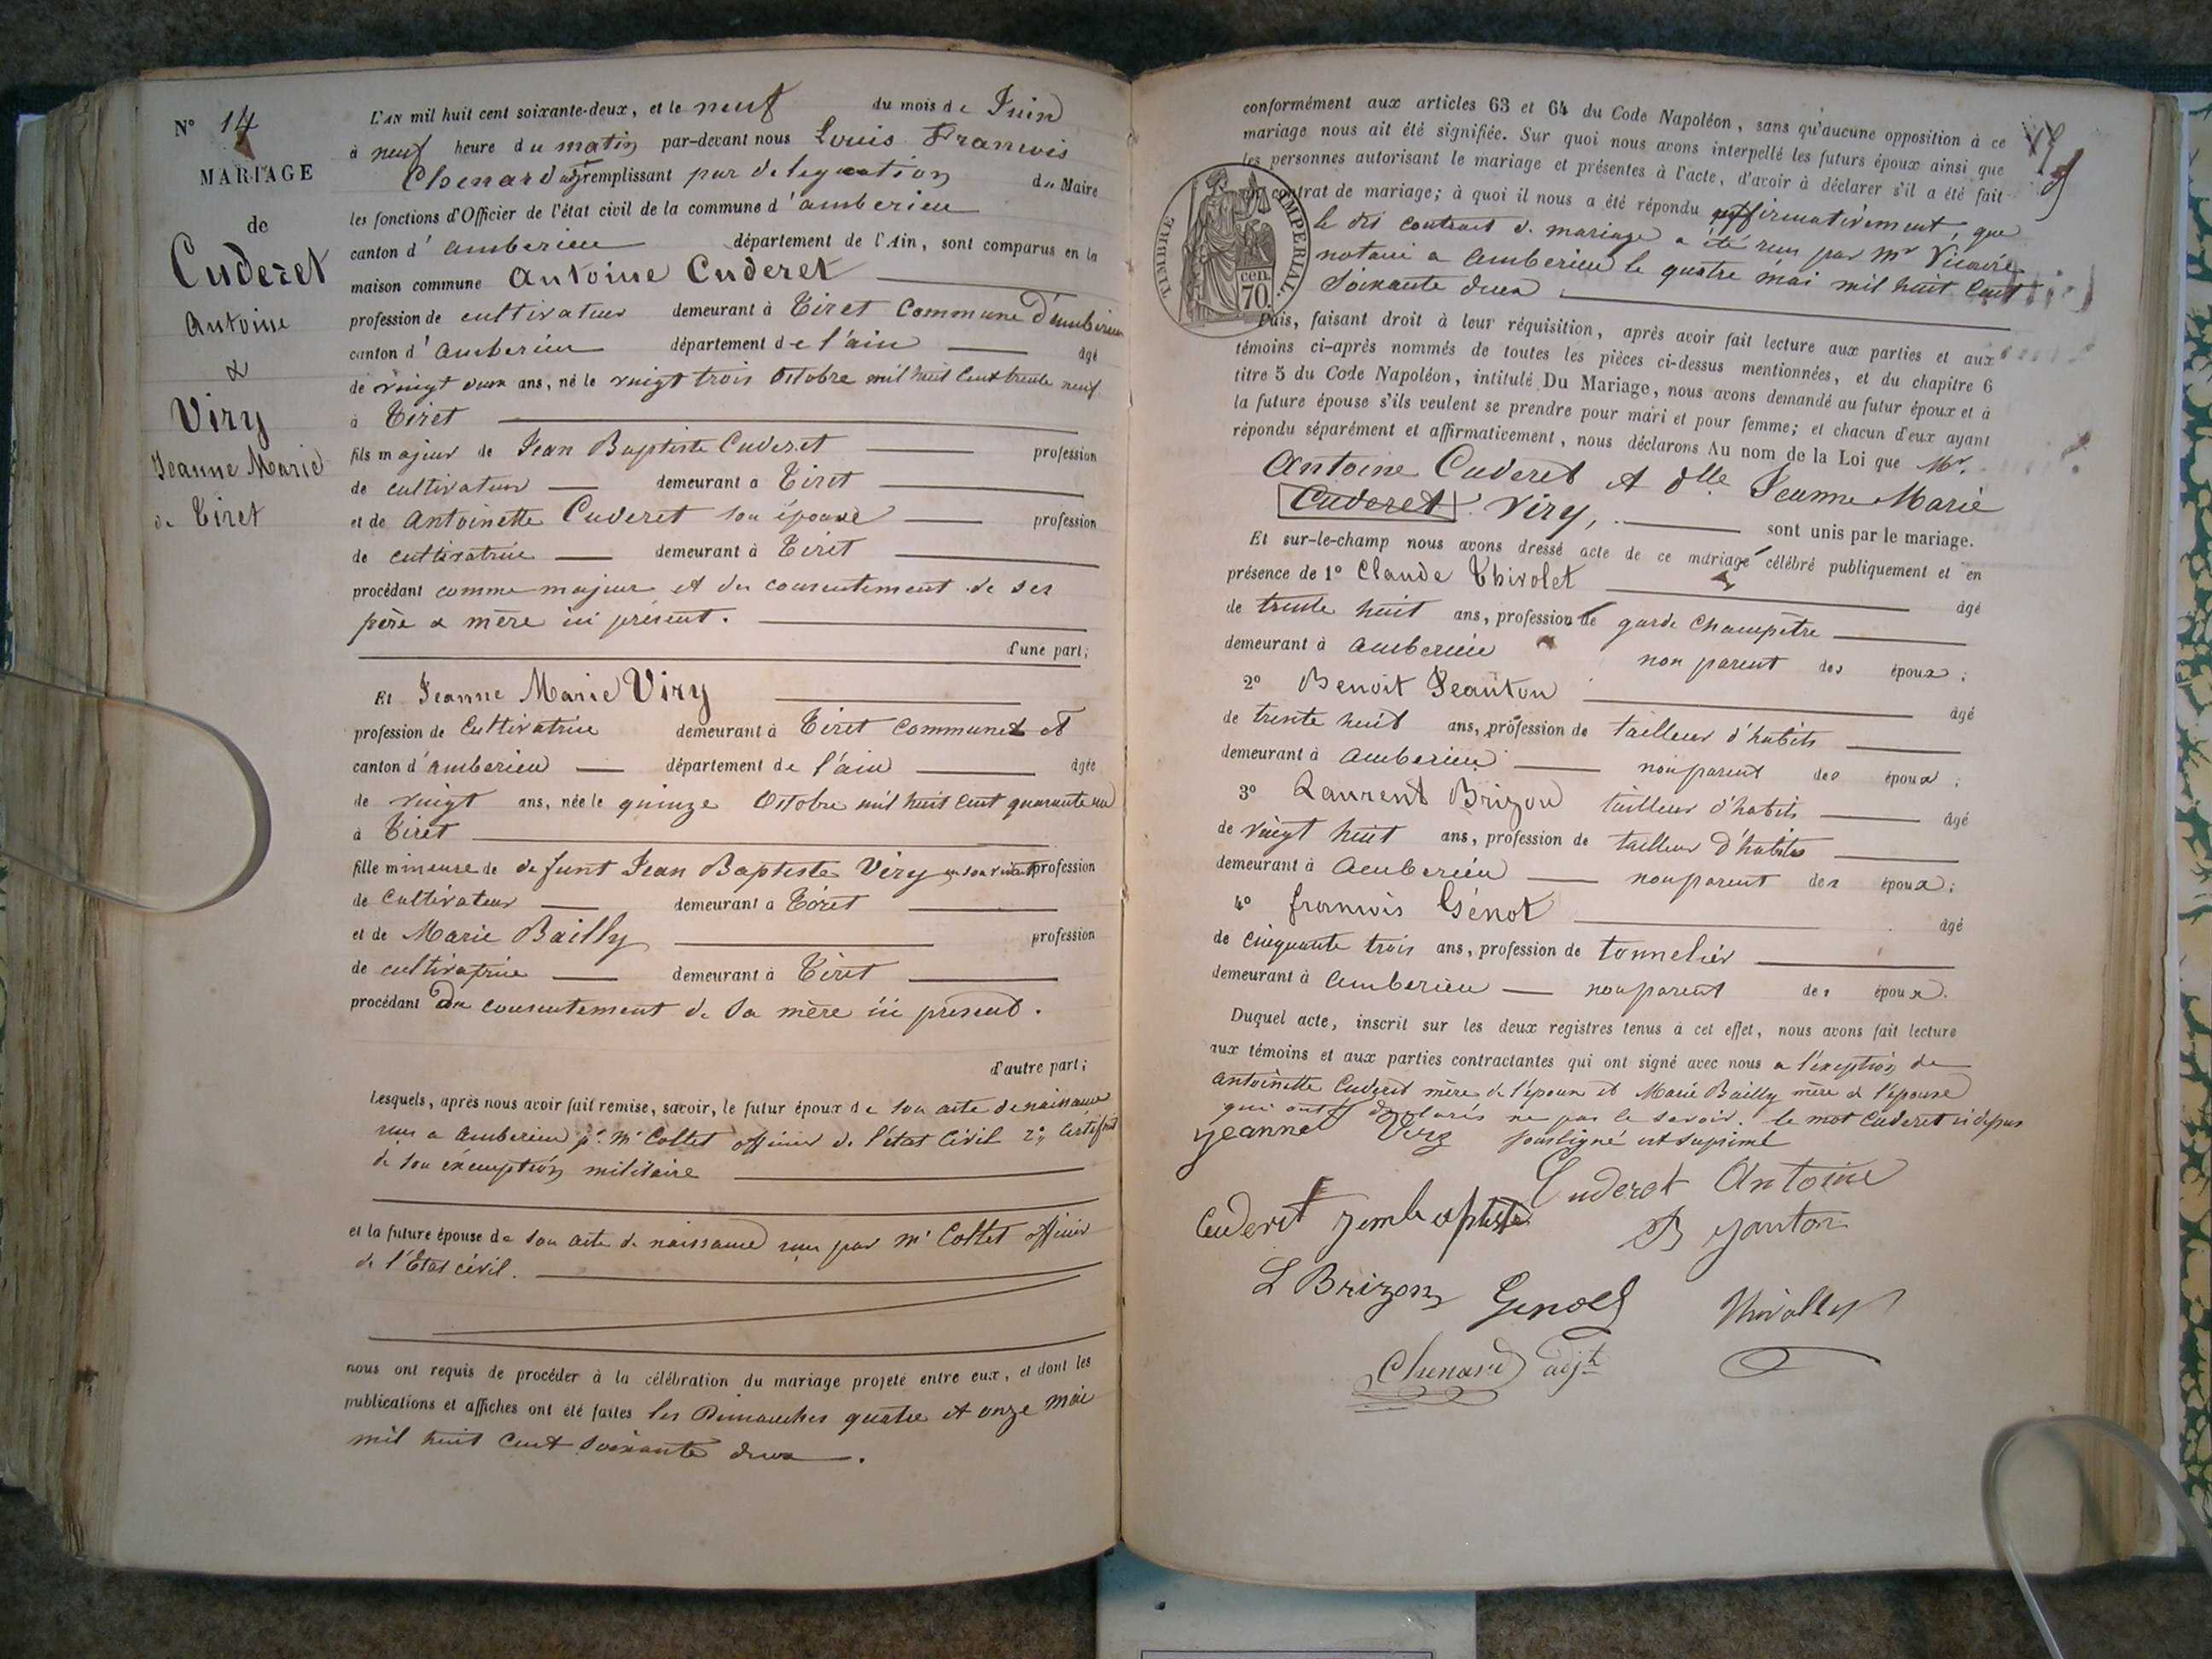 N° 14
MARIAGE
de
Cuderet
Antoine
&
Viry
Jeanne Marie
de Tiret
L'AN mil huit cent soixante-deux, et le neuf du mois de Juin
à neuf heure du matin par-devant nous Louis François
Chenard adj remplissant par délégation du Maire
les fonctions d'Officier de l'état civil de la commune d'amberieu
canton d'amberieu département de l'Ain, sont comparus en la
maison commune Antoine Cuderet
profession de cultivateur demeurant à Tiret Commune d'amberieu
canton d'amberieu département de l'ain âgé
de vingt deux ans, né le vingt trois Octobre mil huit cent trente neuf
à Tiret
fils majeur de Jean Baptiste Cuderet profession
de cultivateur demeurant à Tiret
et de Antoinette Cuderet son épouse profession
de cultivatrice demeurant à Tiret
procédant comme majeur et du consentement de ses
père & mère ici présent.
d'une part;
Et Jeanne Marie Viry
profession de Cultivatrice demeurant à Tiret commune et
canton d'amberieu département de l'ain âgée
de vingt ans, née le quinze Octobre mil huit cent quarante un
à Tiret
fille mineure de defunt Jean Baptiste Viry en son vivant profession
de Cultivateur demeurant à Tiret
et de Marie Bailly profession
de cultivatrice demeurant à Tiret
procédant du consentement de sa mère ici présent.
d'autre part;
Lesquels, après nous avoir fait remise, savoir, le futur époux de son acte de naissance
reçu a amberieu pr. Mr Cottet officier de l'état Civil 2° Certificat
de son éxemption militaire
et la future épouse de son acte de naissance reçu par Mr Cottet officier
de l'Etat civil.
nous ont requis de procéder à la célébration du mariage projeté entre eux, et dont les
publications et affiches ont été faites les Dimanches quatre et onze mai
mil huit cent soixante deux.
conformément aux articles 63 et 64 du Code Napoléon, sans qu'aucune opposition à ce
mariage nous ait été signifiée. Sur quoi nous avons interpellé les futurs époux ainsi que
les personnes autorisant le mariage et présentes à l'acte, d'avoir à déclarer s'il a été fait
un contrat de mariage; à quoi il nous a été répondu affirmativement, que
TIMBRE IMPERIAL.
70 cen.
le dit contrat de mariage a été reçu par Mr Vicaire
notaire a Amberieu le quatre mai mil huit cent
Soixante deux
Puis, faisant droit à leur réquisition, après avoir fait lecture aux parties et aux
témoins ci-après nommés de toutes les pièces ci-dessus mentionnées, et du chapitre 6
titre 5 du Code Napoléon, intitulé Du Mariage, nous avons demandé au futur époux et à
la future épouse s'ils veulent se prendre pour mari et pour femme; et chacun d'eux ayant
répondu séparément et affirmativement, nous déclarons Au nom de la Loi que Mr.
Antoine Cuderet et dlle Jeanne Marie
Cuderet Viry, sont unis par le mariage.
Et sur-le-champ nous avons dressé acte de ce mariage célébré publiquement et en
présence de 1° Claude Thivolet âgé
de trente huit ans, profession de garde Champêtre
demeurant à Amberieu non parent des époux;
2° Benoit Jeanton âgé
de trente huit ans, profession de tailleur d'habits
demeurant à Amberieu non parent des époux;
3° Laurent Brizon tailleur d'habits âgé
de vingt huit ans, profession de tailleur d'habits
demeurant à Amberieu non parent des époux;
4° françois Génot âgé
de cinquante trois ans, profession de tonnelier
demeurant à Amberieu non parent des époux.
Duquel acte, inscrit sur les deux registres tenus à cet effet, nous avons fait lecture
aux témoins et aux parties contractantes qui ont signé avec nous a l'éxeption de
Antoinette Cuderet mère de l'époux et Marie Bailly mère de l'épouse
qui ont déclarés ne pas le savoir. le mot Cuderet ci dessus
sousligné est suprimé
Jeannet Viry
Cuderet Antoine
Cuderet Jembaptiste
B Janton
L Brizon Genod Thivollet
Chenard adjt